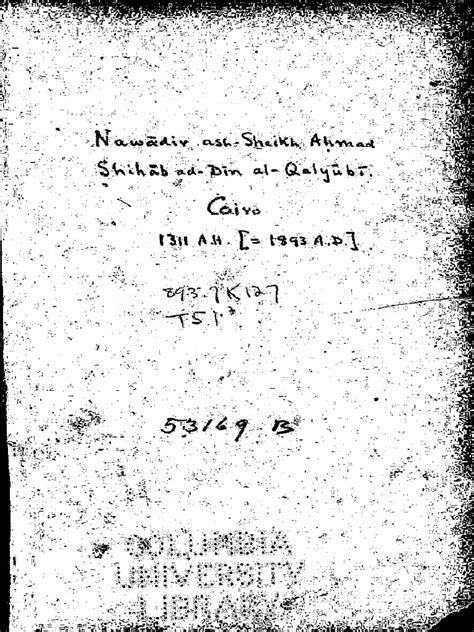 Nawādir ash-Sheikh Aḥmad
Shihāb ad-Dīn al-Qalyūbī.
Cairo
1311 A.H. [= 1893 A.D.]
893.7K127
T51³
53169 B
COLUMBIA
UNIVERSITY
LIBRARY